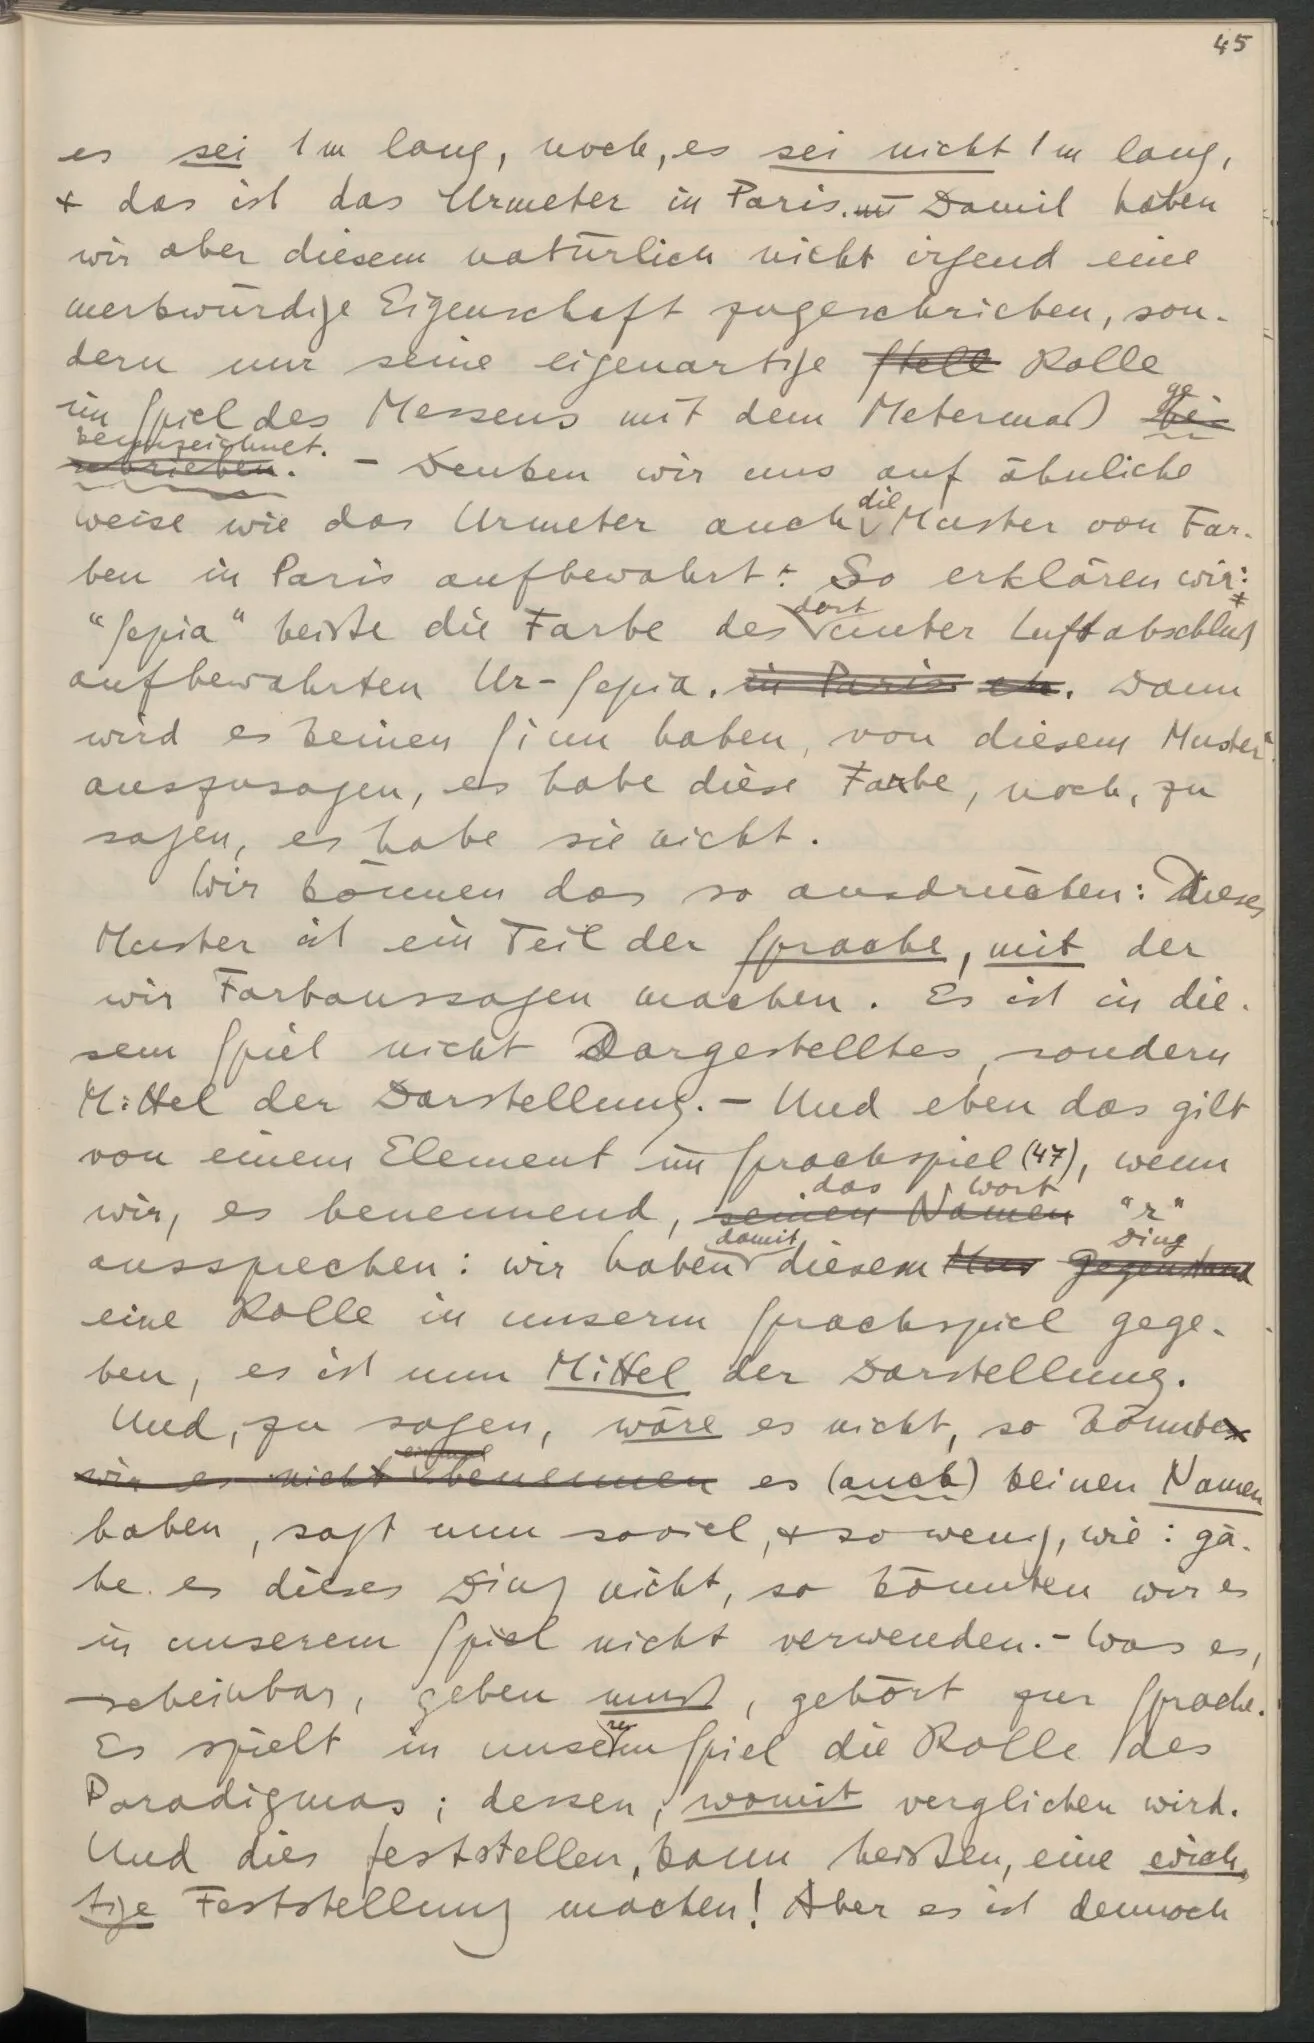 45
es sei 1 m lang, noch, es sei nicht 1 m lang,
+ das ist das Urmeter in Paris. Damit haben
wir aber diesem natürlich nicht irgend eine
merkwürdige Eigenschaft zugeschrieben, son-
dern nur seine eigenartige Stell Rolle
im Spiel des Messens mit dem Metermaß be ge
schrieben. kennzeichnet. – Denken wir uns auf ähnliche
Weise wie das Urmeter auch die Muster von Far-
ben in Paris aufbewahrt. So erklären wir:
"Sepia" heiße die Farbe des dort unter Luftabschluß
aufbewahrten Ur-Sepia. in Paris etc. Dann
wird es keinen Sinn haben, von diesem Muster
auszusagen, es habe diese Farbe, noch, zu
sagen, es habe sie nicht.
Wir können das so ausdrücken: Dieses
Muster ist ein Teil der Sprache, mit der
wir Farbaussagen machen. Es ist in die-
sem Spiel nicht Dargestelltes, sondern
Mittel der Darstellung. – Und eben das gilt
von einem Element im Sprachspiel (47), wenn
wir, es benennend, seinen Namen das Wort "r"
aussprechen: wir haben damit diesem Mus Gegenstand Ding
eine Rolle in unserm Sprachspiel gege-
ben, es ist nun Mittel der Darstellung.
Und, zu sagen, wäre es nicht, so könnte
wir es nicht einmal benennen es (auch) keinen Namen
haben, sagt nun soviel, + so wenig, wie: gä-
be es dieses Ding nicht, so könnten wir es
in unserem Spiel nicht verwenden. – Was es,
scheinbar, geben muß, gehört zur Sprache.
Es spielt in unserem Spiel die Rolle des
Paradigmas; dessen, womit verglichen wird.
Und dies feststellen, kann heißen, eine wich-
tige Feststellung machen! Aber es ist dennoch